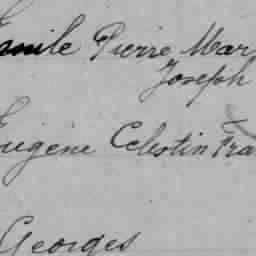 Emile Pierre Mar
Joseph
Eugène Celestin Fra
Georges